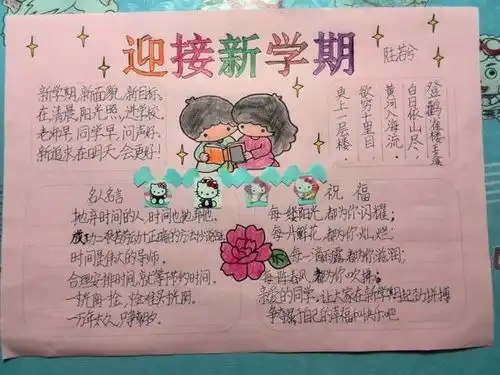 迎接新学期
陆若兮
新学期,新面貌,新目标。
在清晨,阳光照,进学校。
老师早,同学早,问声好。
新追求,在明天,会更好!
登鹳雀楼
白日依山尽,
黄河入海流。
欲穷千里目,
更上一层楼。
名人名言
抛弃时间的人,时间也抛弃他。
成功=艰苦劳动+正确的方法+少说空话
时间是伟大的导师。
合理安排时间,就等于节约时间。
一万年太久,只争朝夕。
祝福
每一缕阳光,都为你闪耀;
每一片鲜花,都为你灿烂;
每一滴雨露,都为你滋润;
每一阵春风,都为你吹拂;
亲爱的同学,让大家在新学期起劲拼搏
争夺属于自己的幸福和快乐吧